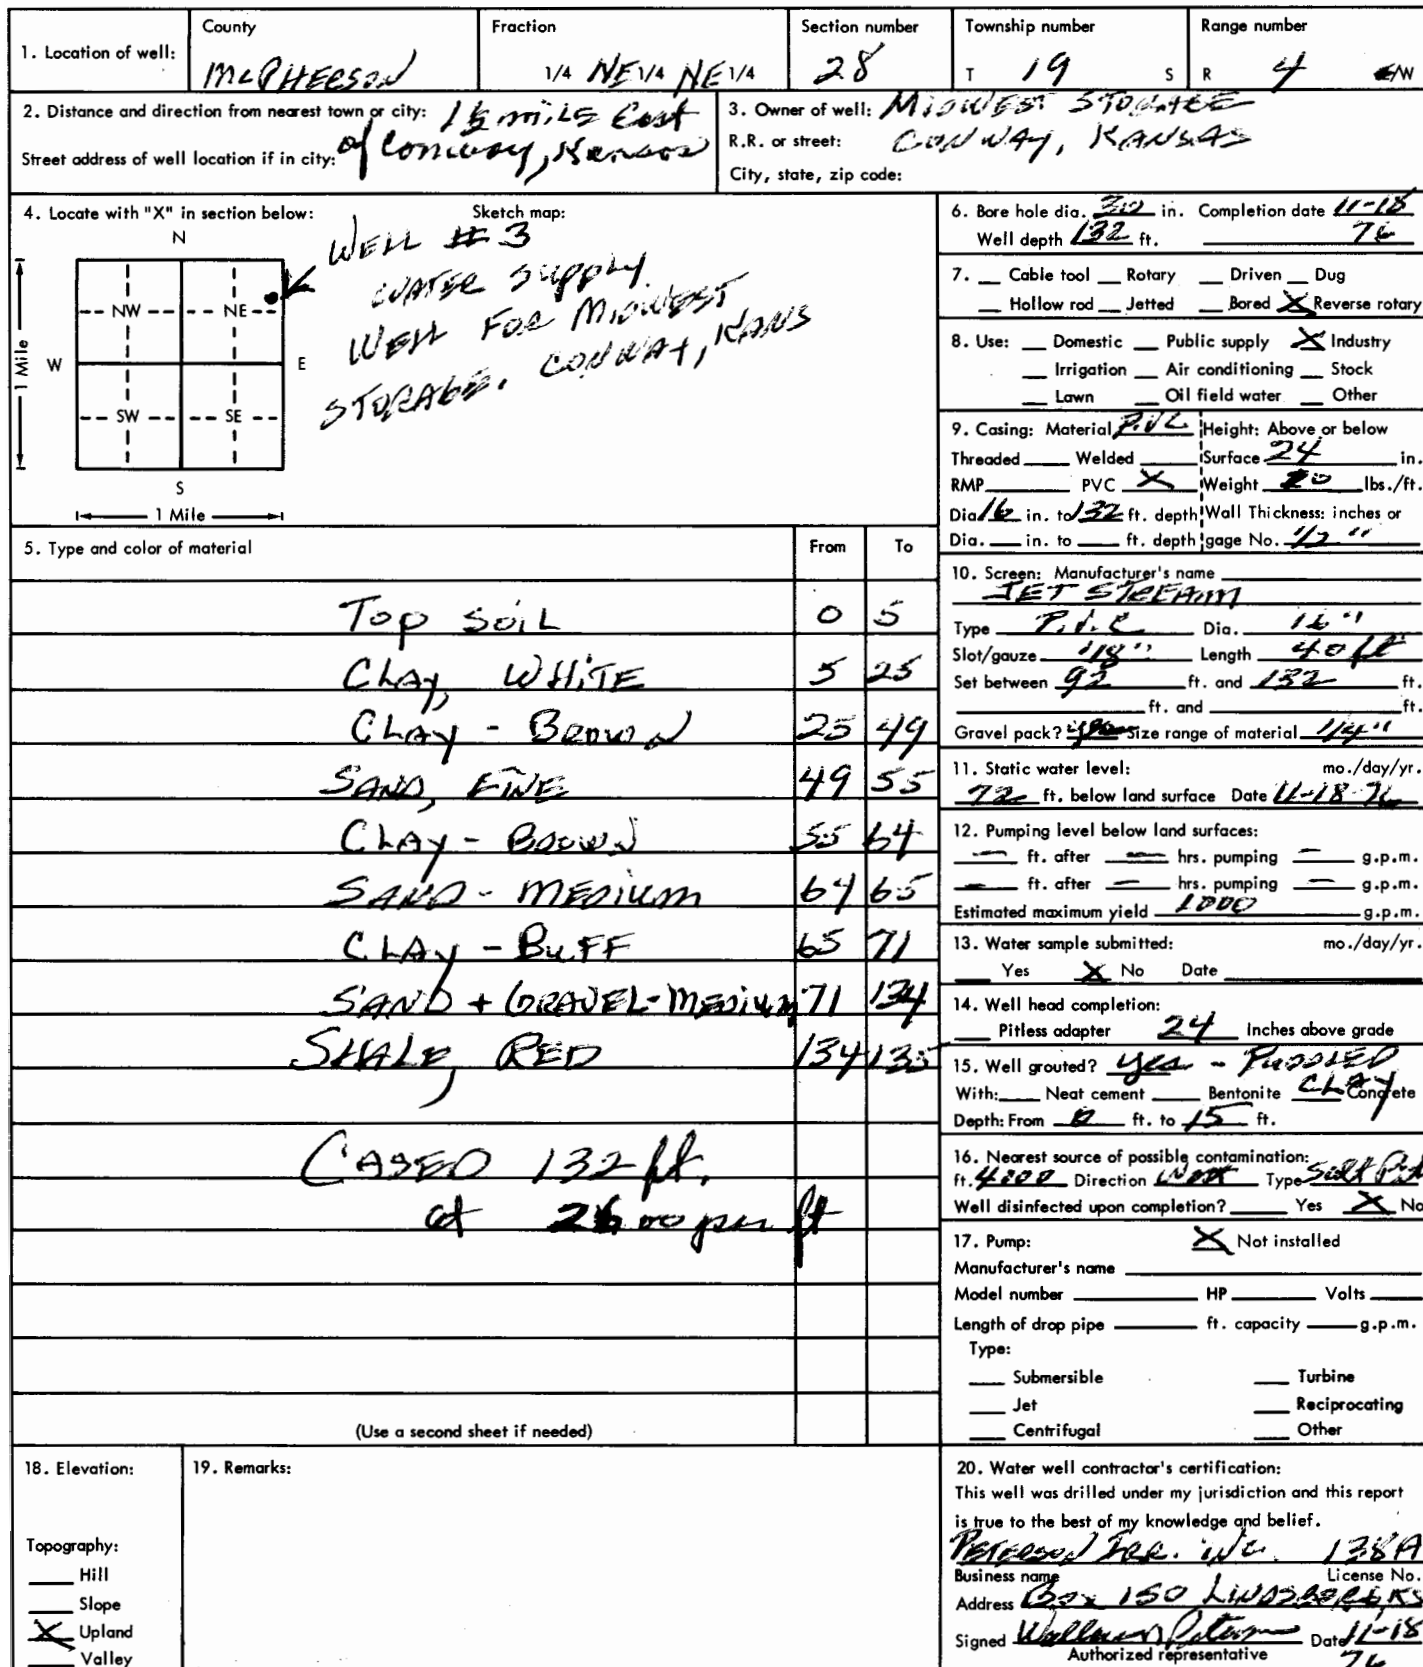 County Fraction Section number Township number Range number
1. Location of well: McPHERSON 1/4 NE 1/4 NE 1/4 28 T 19 S R 4 E/W
2. Distance and direction from nearest town or city: 1½ mile East
of Conway, Kansas
Street address of well location if in city:
3. Owner of well: MIDWEST STORAGE
R.R. or street: CONWAY, KANSAS
City, state, zip code:
4. Locate with "X" in section below: Sketch map:
N
WELL # 3
WATER SUPPLY
WELL FOR MIDWEST
STORAGE. CONWAY, KANS
NW NE
W E
1 Mile
SW SE
S
1 Mile
5. Type and color of material From To
TOP SOIL 0 5
CLAY, WHITE 5 25
CLAY - BROWN 25 49
SAND, FINE 49 55
CLAY - BROWN 55 64
SAND - MEDIUM 64 65
CLAY - BUFF 65 71
SAND + GRAVEL - MEDIUM 71 134
SHALE, RED 134 135
CASED 132 ft.
at 26 00 per ft
(Use a second sheet if needed)
6. Bore hole dia. 30 in. Completion date 11-18
Well depth 132 ft. 76
7. __ Cable tool __ Rotary __ Driven __ Dug
__ Hollow rod __ Jetted __ Bored X Reverse rotary
8. Use: __ Domestic __ Public supply X Industry
__ Irrigation __ Air conditioning __ Stock
__ Lawn __ Oil field water __ Other
9. Casing: Material P.V.C Height: Above or below
Threaded __ Welded __ Surface 24 in.
RMP __ PVC X Weight 20 lbs./ft.
Dia. 16 in. to 132 ft. depth Wall Thickness: inches or
Dia. __ in. to __ ft. depth gage No. 1/2 "
10. Screen: Manufacturer's name
JET STREAM
Type P.V.C Dia. 16"
Slot/gauze 1/8" Length 40 ft
Set between 92 ft. and 132 ft.
__ ft. and __ ft.
Gravel pack? yes Size range of material 1/4"
11. Static water level: mo./day/yr.
72 ft. below land surface Date 11-18-76
12. Pumping level below land surfaces:
— ft. after — hrs. pumping — g.p.m.
— ft. after — hrs. pumping — g.p.m.
Estimated maximum yield 1000 g.p.m.
13. Water sample submitted: mo./day/yr.
__ Yes X No Date __
14. Well head completion:
__ Pitless adapter 24 Inches above grade
15. Well grouted? yes - PUDDLED
CLAY
With: __ Neat cement __ Bentonite __ Concrete
Depth: From 0 ft. to 15 ft.
16. Nearest source of possible contamination:
ft. 4000 Direction West Type Salt Pit
Well disinfected upon completion? __ Yes X No
17. Pump: X Not installed
Manufacturer's name __
Model number __ HP __ Volts __
Length of drop pipe __ ft. capacity __ g.p.m.
Type:
__ Submersible __ Turbine
__ Jet __ Reciprocating
__ Centrifugal __ Other
18. Elevation:
Topography:
__ Hill
__ Slope
X Upland
__ Valley
19. Remarks:
20. Water well contractor's certification:
This well was drilled under my jurisdiction and this report
is true to the best of my knowledge and belief.
PETERSON IRR. INC. 138A
Business name License No.
Address Box 150 LINDSBORG, KS
Signed Peterson Date 11-18
Authorized representative 76